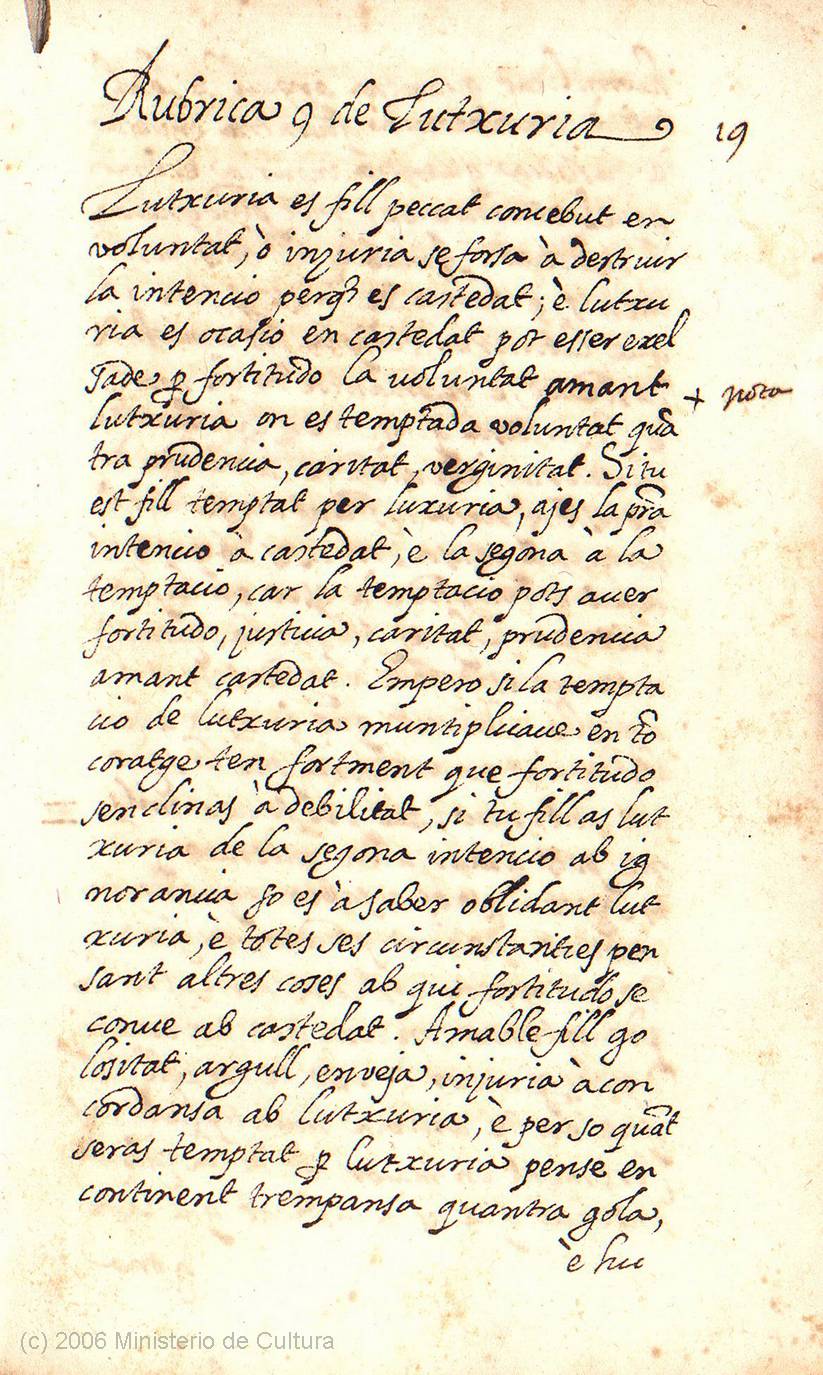 Rubrica 9 de Lutxuria 19
Lutxuria es fill peccat concebut en
voluntat, ò injuria se forsa à destruir
la intencio perq̃ es castedat; è lutxu
ria es ocasio en castedat pot esser exel
tade ꝑ fortitudo la voluntat amant
+ nota
lutxuria on es temptada voluntat quã
tra prudencia, caritat, verginitat. Si tu
est fill temptat per luxuria, ajes la prã
intencio à castedat, è la segona à la
temptacio, car la temptacio pots aver
fortitudo, justicia, caritat, prudencia
amant castedat. Empero si la tempta
cio de lutxuria muntiplicave en tõ
coratge ten fortment que fortitudo
senclinas à debilitat, si tu fill as lut
xuria de la segona intencio ab ig
norancia so es à saber oblidant lut
xuria, è totes ses circunstanties pen
sant altres coses ab qui fortitudo se
conve ab castedat. Amable fill go
lositat, argull, enveja, injuria à con
cordansa ab lutxuria, è per so quãt
seras temptat ꝑ lutxuria pense en
continent trempansa quantra gola,
è hu
(c) 2006 Ministerio de Cultura